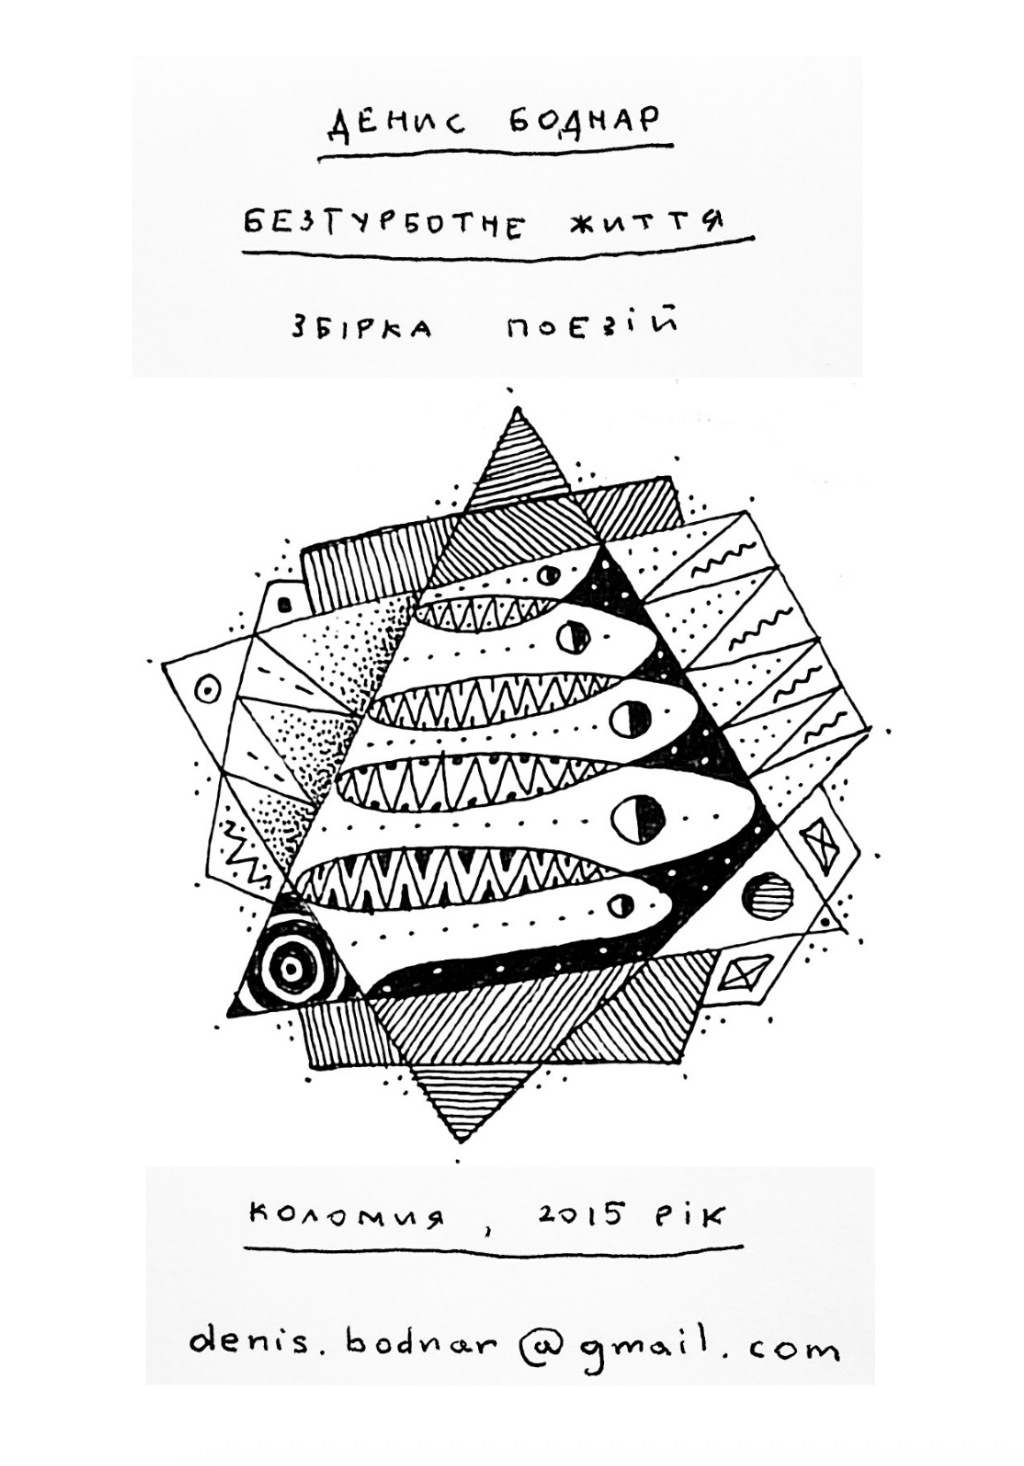 ДЕНИС БОДНАР
БЕЗТУРБОТНЕ ЖИТТЯ
ЗБІРКА ПОЕЗІЙ
КОЛОМИЯ, 2015 РІК
denis.bodnar@gmail.com